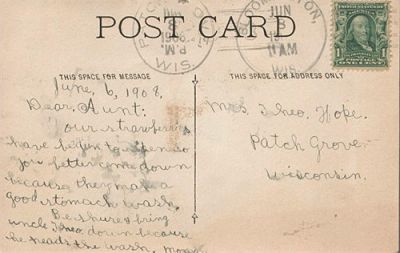 POST CARD
JUN
8
1908
P.M.
WIS.
BLOOMINGTON
JUN
8
11 AM
WIS.
1
THIS SPACE FOR MESSAGE
THIS SPACE FOR ADDRESS ONLY
June, 6, 1908,
Dear, Aunt:
our strawberries
have begun to ripen so
you better come down
because they make a
good stomach wash.
Be shure & bring
uncle Theo. down because
he needs the wash.
Mrs. Theo. Hope.
Patch Grove
Wisconsin.